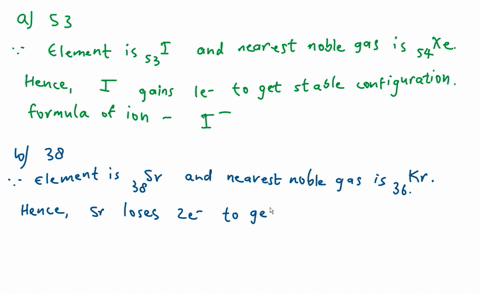 a) 53
∵ Element is ₅₃I and nearest noble gas is ₅₄Xe.
Hence, I gains 1e- to get stable configuration.
formula of ion - I⁻
b) 38
∵ Element is ₃₈Sr and nearest noble gas is ₃₆Kr.
Hence, Sr loses 2e⁻ to ge